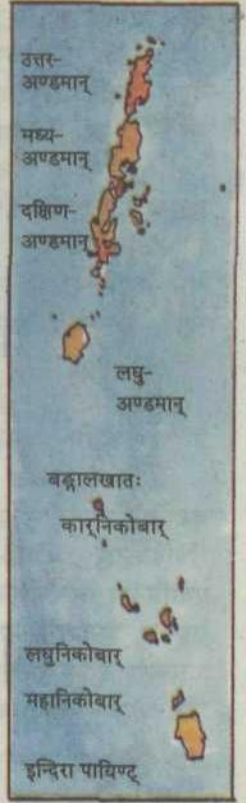 उत्तर-
अण्डमान्
मध्य-
अण्डमान्
दक्षिण-
अण्डमान्
लघु-
अण्डमान्
बङ्गालखातः
कार्निकोबार्
लघुनिकोबार्
महानिकोबार्
इन्दिरा पायिण्ट्